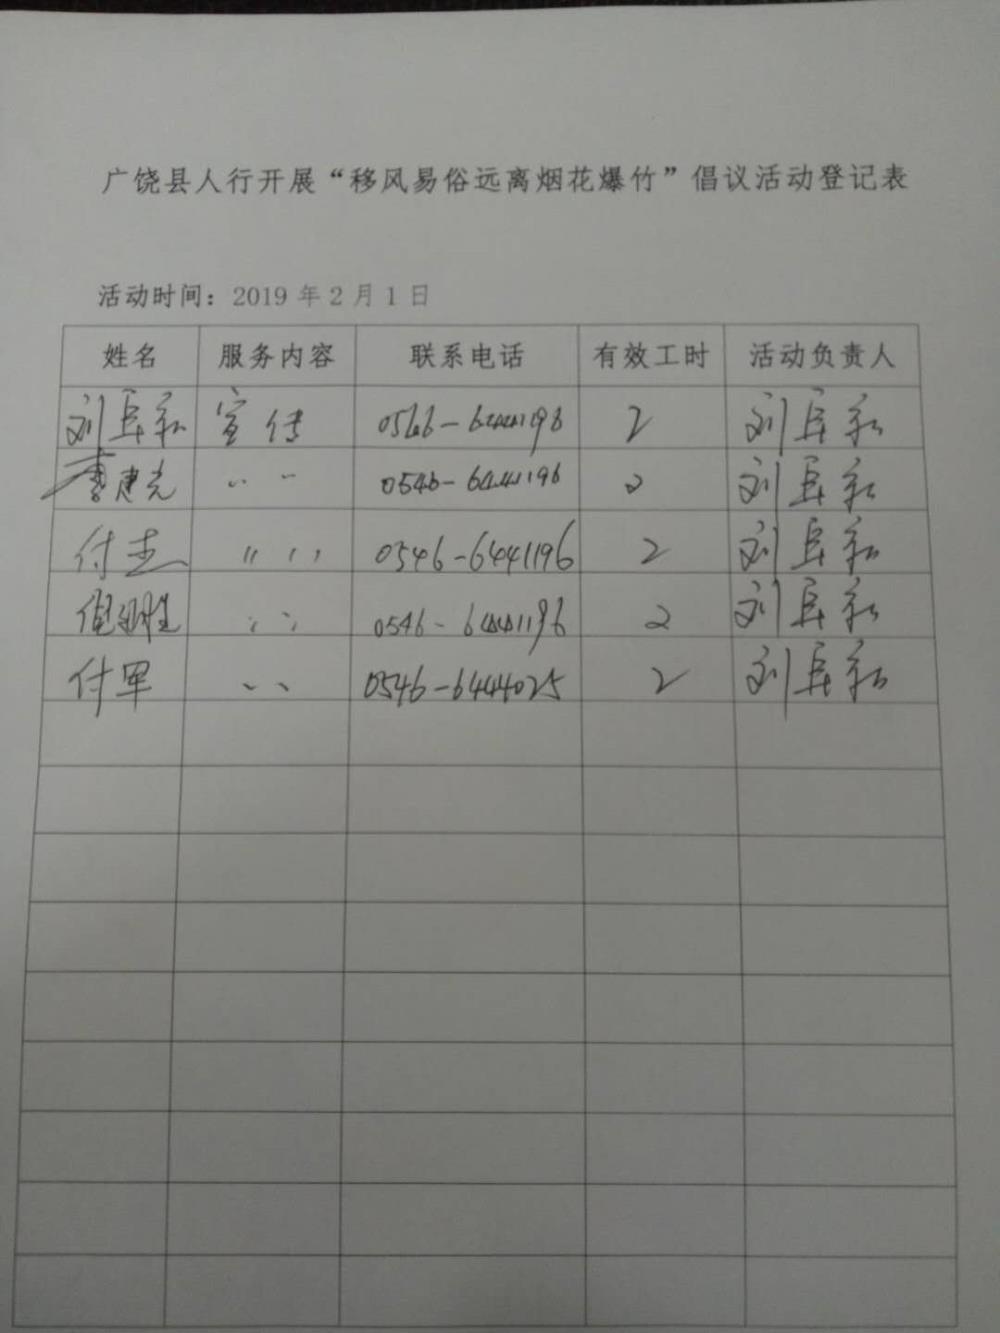 广饶县人行开展“移风易俗远离烟花爆竹”倡议活动登记表
活动时间：2019 年 2 月 1 日
姓名 服务内容 联系电话 有效工时 活动负责人
刘 宣传 2 刘
李建光 〃 〃 0546-6441196 2 刘
付杰 〃 〃 0546-6441196 2 刘
倪 〃 〃 0546-6441196 2 刘
付军 〃 〃 0546-6444025 2 刘